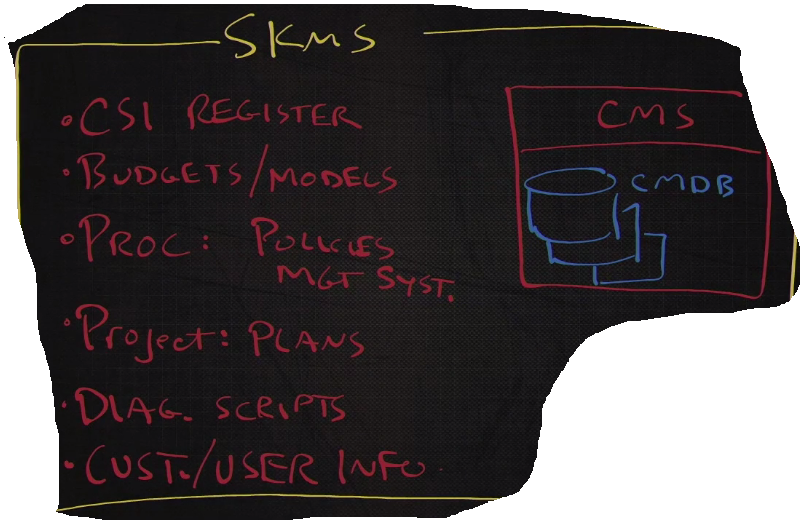 SKMS
• CSI REGISTER
• BUDGETS/MODELS
• PROC: POLICIES
MGT SYST.
• Project: PLANS
• DIAG. SCRIPTS
• CUST./USER INFO
CMS
CMDB